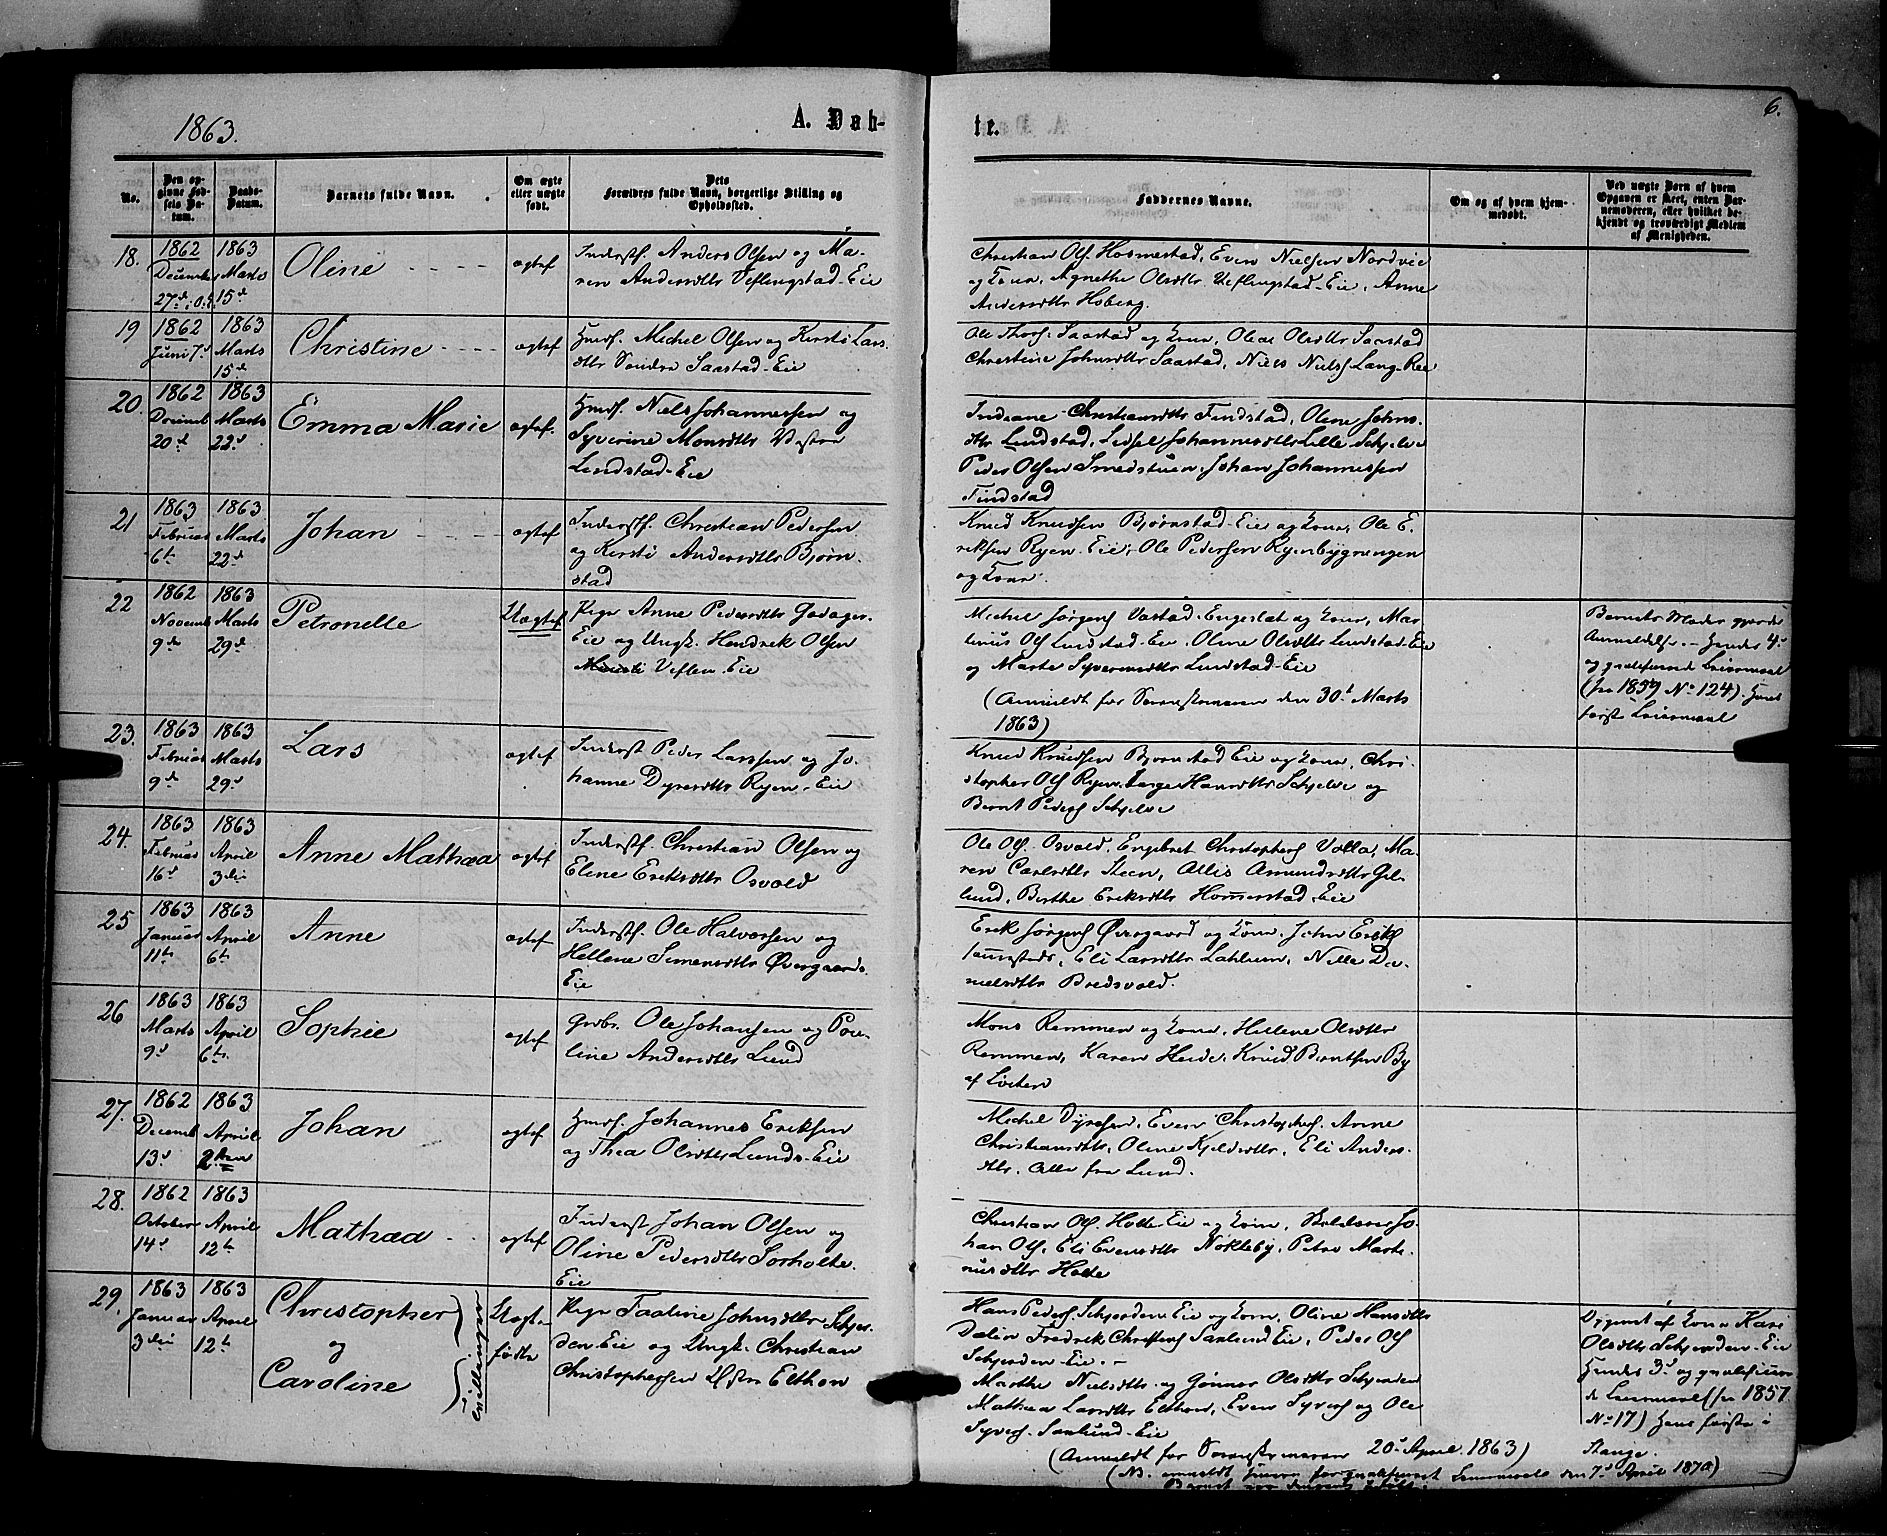 1863.
A. Døb-
te.
6.
No.
Den op-
givne Fød-
sels Da-
tum.
Daabs-
Datum.
Barnets fulde Navn.
Om ægte
eller uægte
født.
Dets
Forældres fulde Navn, borgerlige Stilling og
Opholdssted.
Faddernes Navne.
Om og af hvem hjem-
medøbt.
Ved uægte Børn af hvem
Opgaven er skeet, enten Bar-
nemoderen, eller hvilket be-
kjendt og troværdigt Medlem
af Menigheden.
18.
1862
27de
1863
Marts
15de
Oline
ægtef
Inderstf. Anders Olsen og Ma-
ren Andersdtr Veflingstad-Eie
Christian Ols. Hosmestad, Even Nielsen Nordvie
og Kone, Agnethe Olsdtr Veflingstad-Eie, Anne
Andersdtr Hoberg.
19
1862
Juni 7d
1863
Marts
15de
Christine
ægtef
Hmdf. Michel Olsen og Kersti Lars-
dtr Søndre Saastad-Eie
Ole Thors. Saastad og Kone, Oline Olsdtr Saastad
Christine Johnsdtr Saastad, Niels Niels. Lang-Ree
20.
1862
Decemb
20de
1863
Marts
22d
Emma Marie
ægtef.
Hmdf. Niels Johannessen og
Syverine Monsdtr Vestre
Lundstad-Eie
Indiane Christiansdtr Findstad, Oline Johns-
dtr Lundstad, Johannesdtr Lille Schjelve
Peder Olsen Smedstuen, Johan Johannessen
Findstad
21
1863
Februar
6te
1863
Marts
22de
Johan
ægtef
Inderstf. Christian Pedersen
og Kersti Andersdtr Bjørn-
stad
Knud Knudsen Bjørnstad-Eie og Kone, Ole E-
riksen Ryen-Eie, Ole Pedersen Ryenbygningen
og Kone.
22
1862
Novemb
9de
1863
Marts
29de
Petronelle
Uægtef
Pige Anne Pedersdtr Godager-
Eie og Ungk. Hendrek Olsen
Veflen-Eie
Michel Jørgens. Vastad-Engeslet og Kone, Mar-
tinus Ols. Lundstad-Eie, Oline Olsdtr Lundstad-Eie
og Marthe Syversdtr Lundstad-Eie
(Anmeldt for Sorenskriveren den 30te Marts
1863)
Barnets Moder gjorde
Anmeldelse. - Hendes 4de
og qvalificerede Leiermaal
(fra 1859 No 124). Hans
første Leiermaal
23.
1863
Februar
9de
1863
Marts
29d
Lars
ægtef
Inderst Peder Larssen og Jo-
hanne Dyresdtr Ryen-Eie
Knud Knudsen Bjørnstad Eie og Kone, Chri-
stopher Ols. Ryen, Hansdtr Schjelve og
Bernt Peders. Schjelve
24.
1863
Februar
16d
1863
April
3die
Anne Mathea
ægtef
Inderstf. Christian Olsen og
Eline Eriksdtr Osvold
Ole Ols. Osvold, Engebret Christophers. Volla, Ma-
ren Carlsdtr Steen, Allis Amundsdtr Gil-
lund, Berthe Eriksdtr Hommerstad-Eie
25
1863
Januar
11te
1863
April
6te
Anne
ægtef
Inderstf. Ole Halvorsen og
Hellene Simensdtr Øvergaard-
Eie
Erik Jørgens. Øvergaard og Kone, John Eriks.
Eli Larsdtr Lahlum, Nille Da-
nielsdtr Bredsvold.
26
1863
Marts
9d
1863
April
6te
Sophie
ægtef
Grbr. Ole Johansen og Pou-
line Andersdtr Lund
Mons Remmen og Kone, Hellene Olsdtr
Remmen, Karen Heide, Knud Berntsen By
af Løiten
27.
1862
Decemb
13d
1863
April
2den
Johan
ægtef
Hmdf. Johannes Eriksen
og Thea Olsdtr Lunds-Eie
Michel Dyresen, Even Christophers. Anne
Christiansdtr, Oline Kjeldsdtr, Eli Anders-
dtr. Alle fra Lund.
28.
1862
October
14d
1863
April
12te
Mathea
ægtef
Inderst Johan Olsen og
Oline Pedersdtr Sørholte-
Eie
Christian Ols. Holte-Eie og Kone, Jo-
han Ols. Eli Evensdtr Nøkleby, Petra Marti-
nusdtr Holte
29.
1863
Januar
3die
1863
April
12te
Christopher
og
Caroline
tvillinger
Uægte
fødte
Pige Taaline Johnsdtr Schjer-
den-Eie og Ungk. Christian
Christophersen Østre Elthon
Hans Peders. Schjerden Eie og Kone, Oline Hansdtr
Dalin Fredrik Christens. Saxlund Eie, Peder Ols.
Schjerden-Eie. -
Marthe Nielsdtr og Gunnor Olsdtr Schjerden
Mathea Larsdtr Elthon, Even Syvers. og Ole
Syvers. Saxlund-Eie
(Anmeldt for Sorenskriveren 20d April 1863)
(NB. anmeldt for qvalificeret Leiermaal den 7d April 1870)
Opgivet af Kone Kari
Olsdtr Schjerden-Eie
Hendes 3d og qvalificere-
de Leiermaal (fra 1857
No 17) Hans første i
Stange.